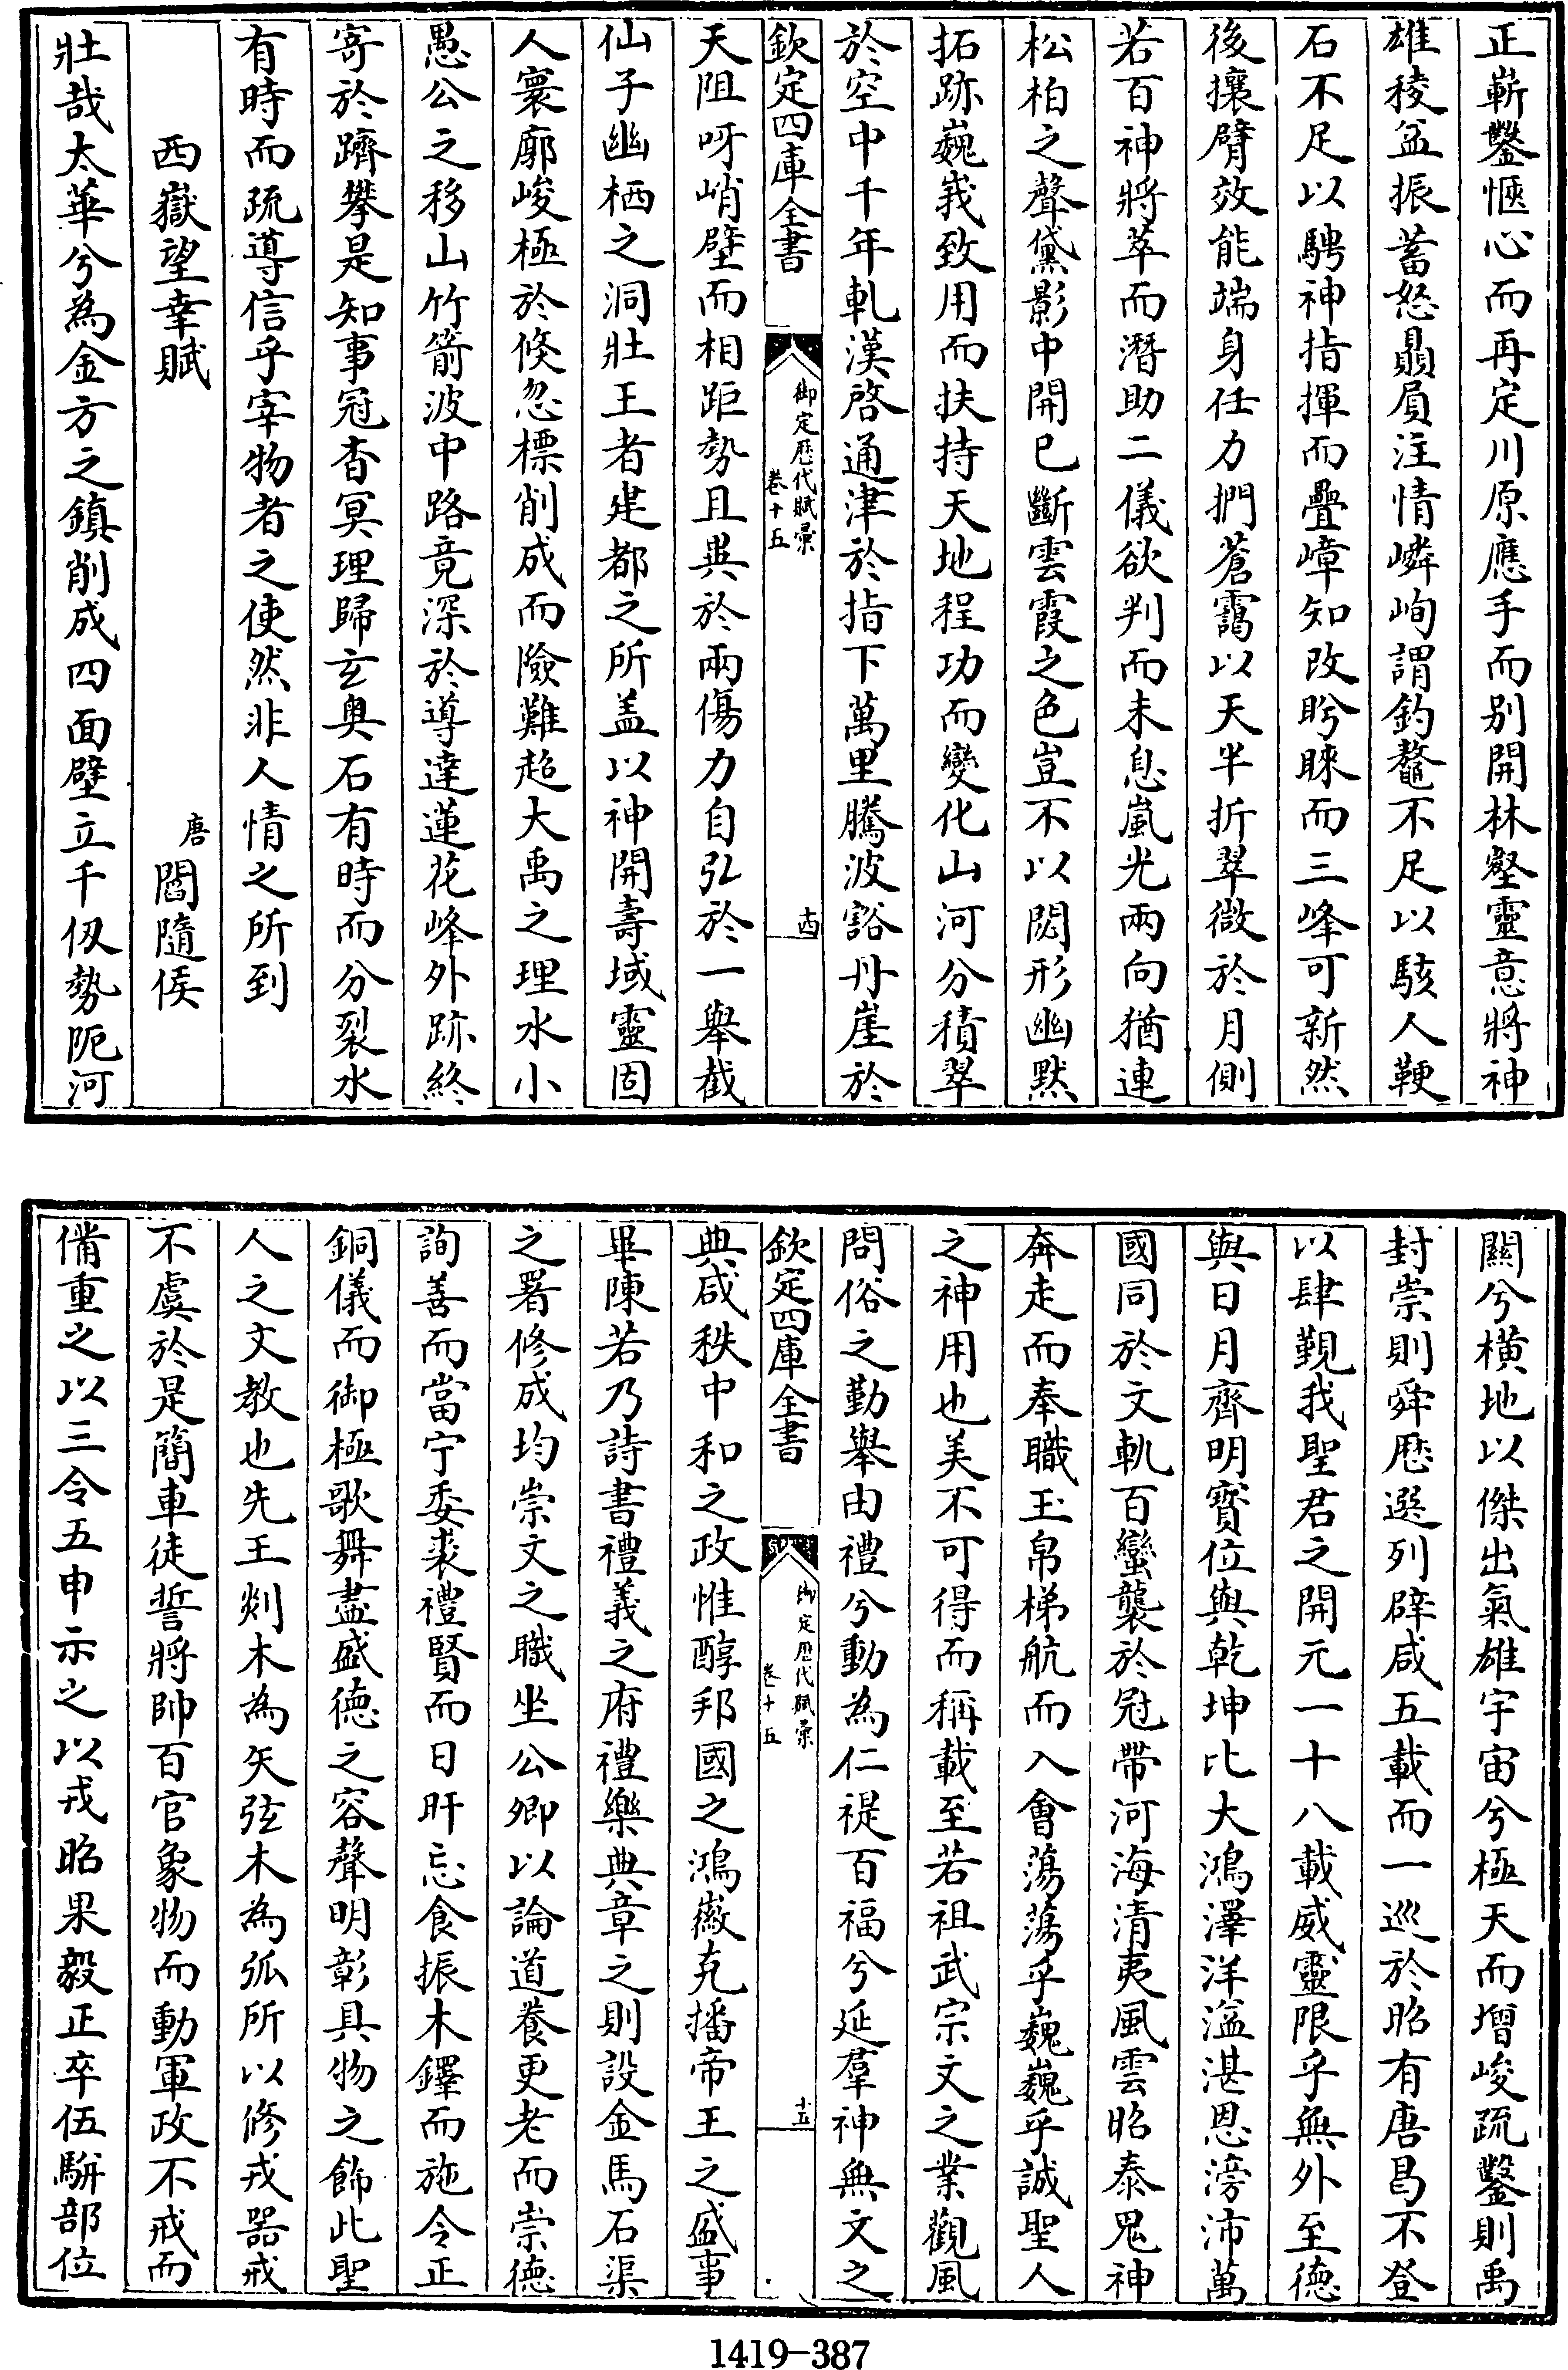 正嶄鑿愜心而再定川原應手而别開林壑靈意將神
雄稜盆振蓄怒贔屓注情嶙峋謂釣鼇不足以駭人鞭
石不足以騁神指揮而疊嶂知改盼睞而三峰可新然
後攘臂效能端身任力捫蒼靄以天半折翠微於月側
若百神將萃而潛助二儀欲判而未息嵐光兩向猶連
松柏之聲黛影中開已斷雲霞之色豈不以閟形幽黙
拓跡巍峩致用而扶持天地程功而變化山河分積翠
於空中千年軋漢啓通津於指下萬里騰波豁丹崖於
欽定四庫全書
御定歷代賦彙
卷十五
十四
天阻呀峭壁而相距勢且異於兩傷力自弘於一舉截
仙子幽栖之洞壯王者建都之所盖以神開壽域靈固
人寰廓峻極於倐忽標削成而險難超大禹之理水小
愚公之移山竹箭波中路竟深於導達蓮花峰外跡終
寄於躋攀是知事冠杳冥理歸玄奥石有時而分裂水
有時而疏導信乎宰物者之使然非人情之所到
西嶽望幸賦
唐 閻隨侯
壯哉太華兮為金方之鎮削成四面壁立千仭勢阨河
關兮橫地以傑出氣雄宇宙兮極天而增峻疏鑿則禹
封崇則舜歷選列辟咸五載而一巡於昭有唐曷不登
以肆覲我聖君之開元一十八載威靈限乎無外至德
與日月齊明寳位與乾坤比大鴻澤洋溢湛恩滂沛萬
國同於文軌百蠻襲於冠帶河海清夷風雲昭泰鬼神
奔走而奉職玉帛梯航而入會蕩蕩乎巍巍乎誠聖人
之神用也美不可得而稱載至若祖武宗文之業觀風
問俗之勤舉由禮兮動為仁禔百福兮延羣神無文之
欽定四庫全書
御定歷代賦彙
卷十五
十五
典咸秩中和之政惟醇邦國之鴻徽克播帝王之盛事
畢陳若乃詩書禮義之府禮樂典章之則設金馬石渠
之署修成均崇文之職坐公卿以論道養更老而崇德
詢善而當宁委裘禮賢而日旰忘食振木鐸而施令正
銅儀而御極歌舞盡盛德之容聲明彰具物之飾此聖
人之文教也先王剡木為矢弦木為弧所以修戎器戒
不虞於是簡車徒誓將帥百官象物而動軍政不戒而
備重之以三令五申示之以戎昭果毅正卒伍駢部位
1419-387